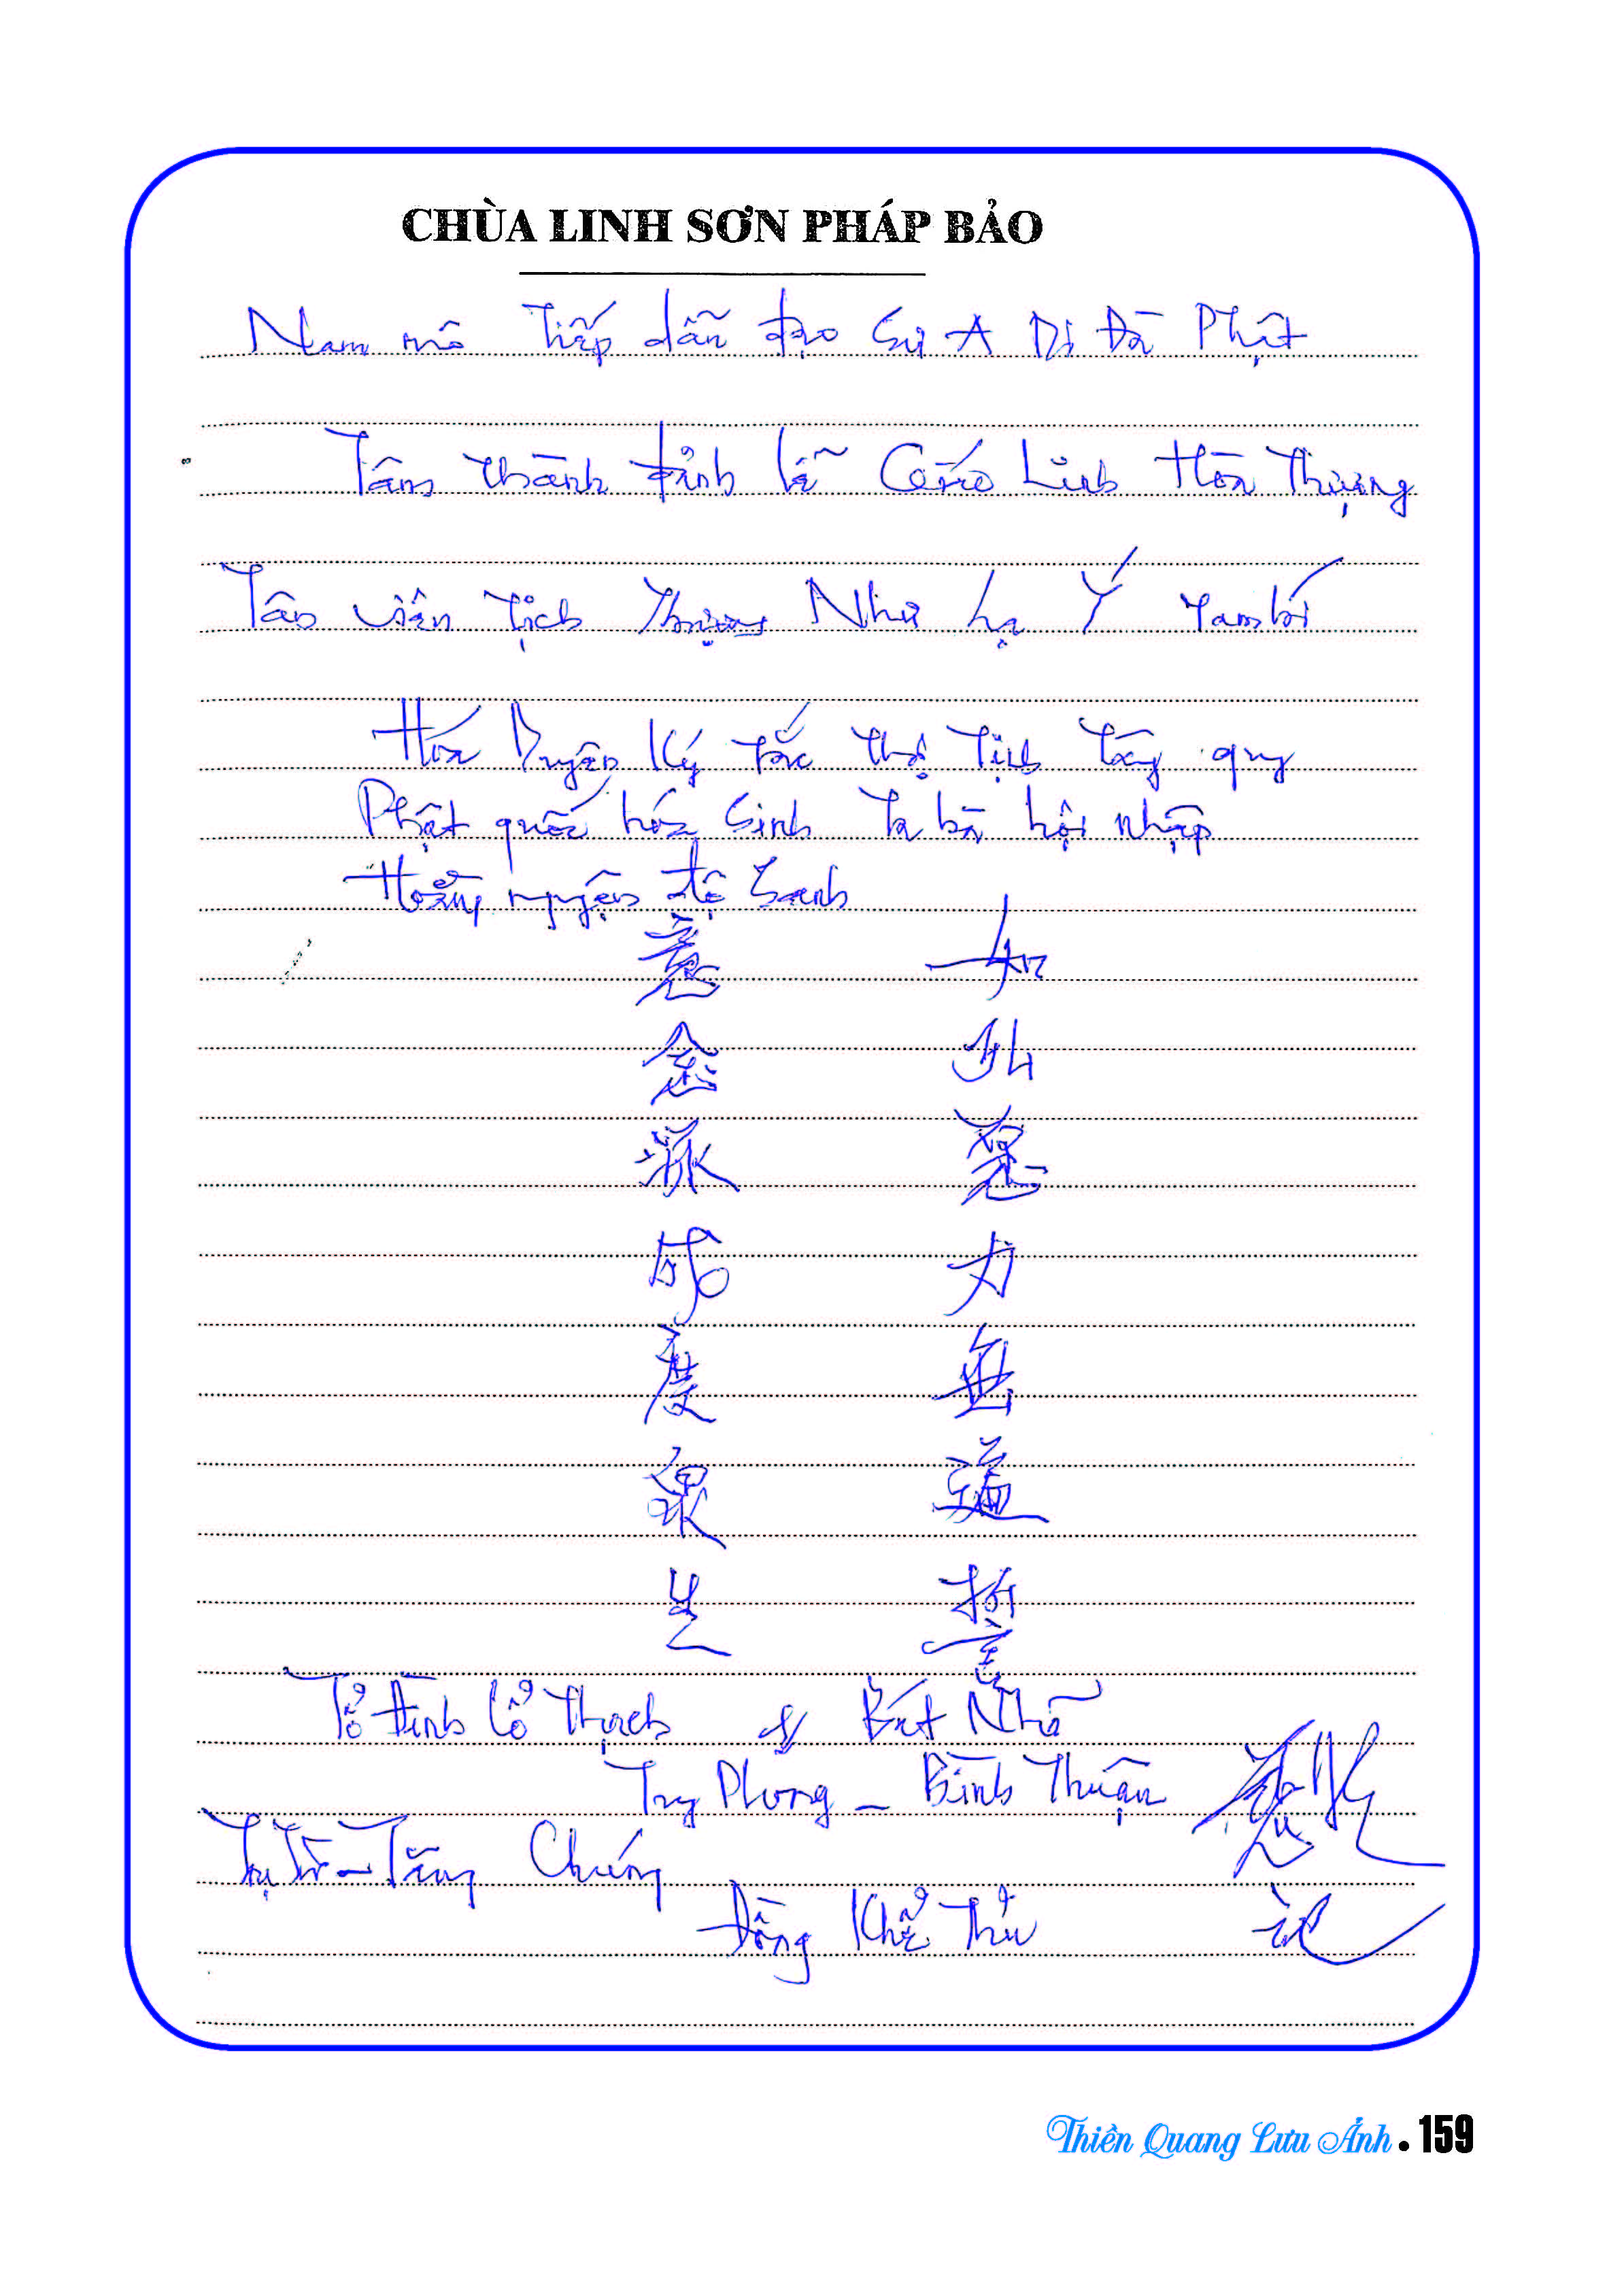 CHÙA LINH SƠN PHÁP BẢO
Nam mô Tiếp dẫn đạo sư A Di Đà Phật
Tâm thành đỉnh lễ Giác Linh Hòa Thượng
Tân viên tịch Thượng Như hạ Ý
Hóa Duyên Ký tất thị tịch Tây quy
Phật quốc hóa sinh Ta bà hội nhập
Hoằng nguyện độ sanh
如
力無邊誓
意
念
成度眾生
Tổ đình Cổ Thạch Bát Nhã
Tuy Phong - Bình Thuận
Trụ Trì - Tăng Chúng
Đồng Khể Thủ
記
Thiền Quang Lưu Ảnh . 159